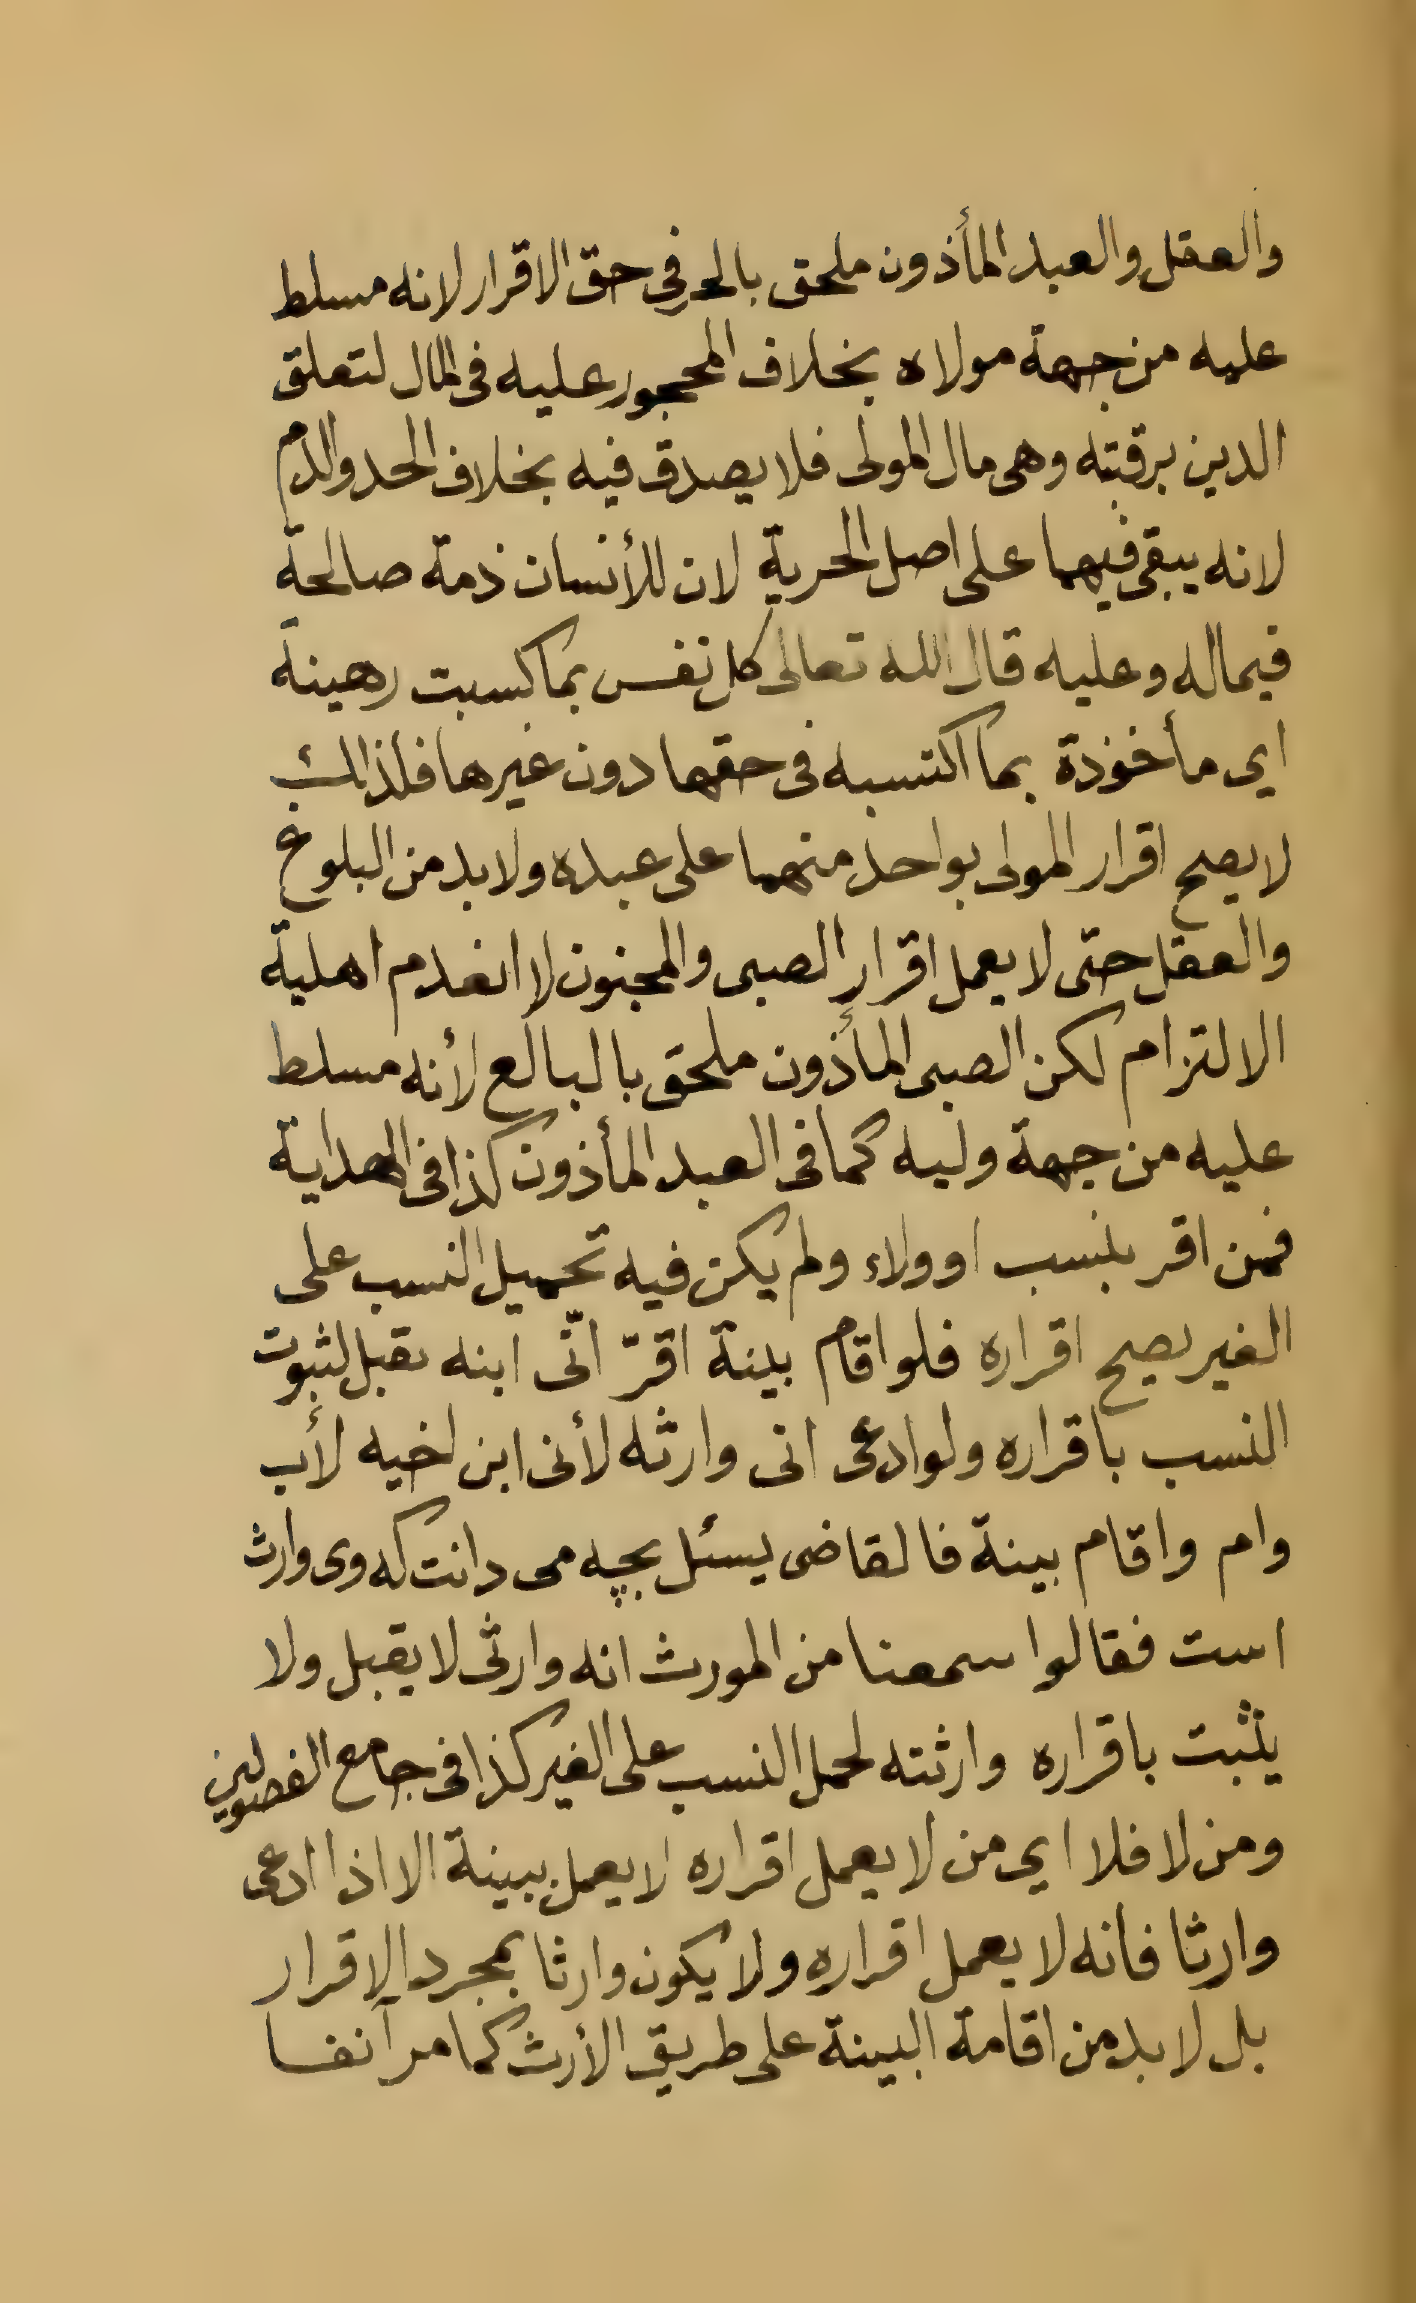 والعقل والعبد المأذون ملحق بالحر فى حق الاقرار لانه مسلط
عليه من جهة مولاه بخلاف المحجور عليه فى المال لتعلق
الدين برقبته وهى مال المولى فلا يصدق فيه بخلاف الحد والدم
لانه يبقى فيهما على اصل الحرية لان للأنسان ذمة صالحة
فيما له وعليه قال الله تعالى كل نفس بما كسبت رهينة
اي مأخوذة بما اكتسبه فى حقها دون غيرها فلذالك
لا يصح اقرار المولى بواحد منهما على عبده ولا بد من البلوغ
والعقل حتى لا يعمل اقرار الصبى والمجنون لا انعدم اهلية
الالتزام لكن الصبى المأذون ملحق بالبالع لأنه مسلط
عليه من جهة وليه كما فى العبد المأذون كذا فى الهداية
فمن اقر بنسب او ولاء ولم يكن فيه تحميل النسب على
الغير يصح اقراره فلو اقام بينة اقرّ انّى ابنه يقبل لثبوت
النسب باقراره ولو ادعى انى وارثه لأنى ابن اخيه لأب
وام واقام بينة فالقاضى يسئل بچه مى دانت كه وى وارث
است فقالوا سمعنا من المورث انه وارثى لا يقبل ولا
يثبت باقراره وارثته لحمل النسب على الغير كذا فى جامع الفصولين
ومن لا فلا اي من لا يعمل اقراره لا يعمل ببينة الا اذا ادعى
وارثا فانه لا يعمل اقراره ولا يكون وارثا بمجرد الاقرار
بل لا بد من اقامة البينة على طريق الأرث كما مر آنفا